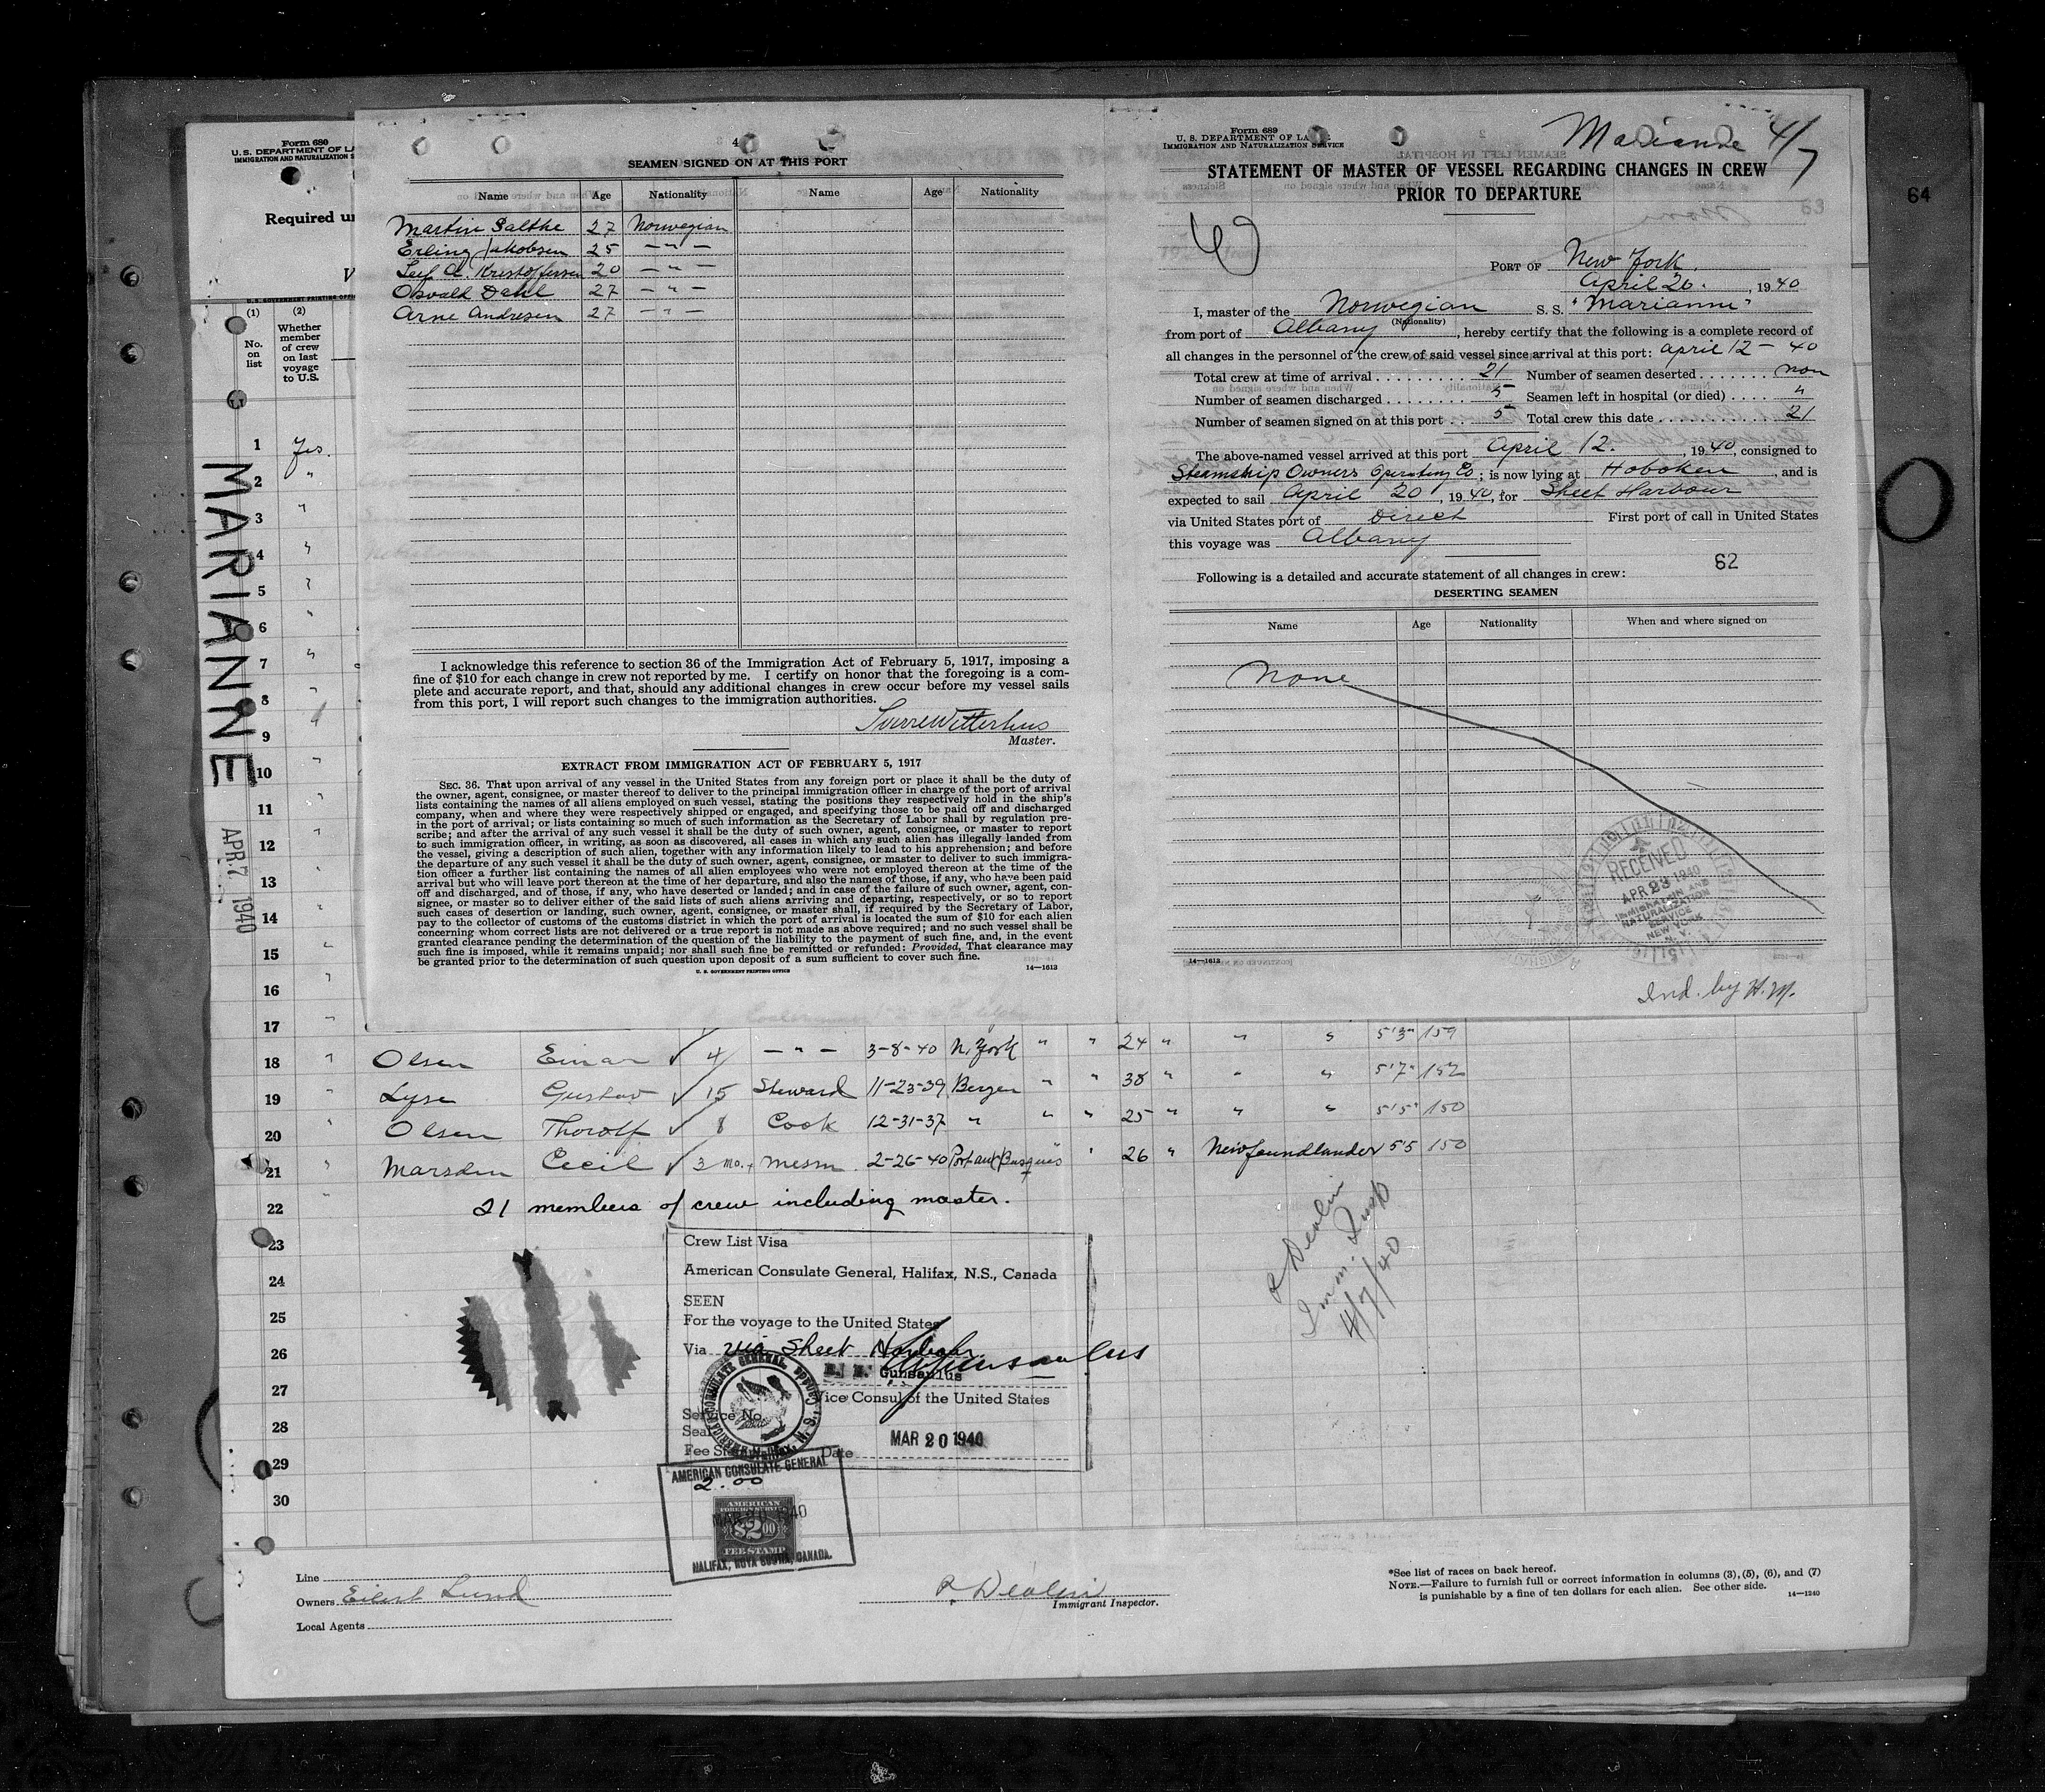 Form 680
U. S. DEPARTMENT OF LA
IMMIGRATION AND NATURALIZATION S
Required un
V
U. S. GOVERNMENT PRINTING OFFI
(1) (2)
No. on list
Whether member of crew on last voyage to U.S.
MARIANNE
APR. 7 1940
4
SEAMEN SIGNED ON AT THIS PORT
Name Age Nationality Name Age Nationality
Martin Salthe 27 Norwegian
Erling Jakobsen 25 — " —
Leif A. Kristoffersen 20 — " —
Osvald Dahl 27 — " —
Arne Andresen 27 — " —
I acknowledge this reference to section 36 of the Immigration Act of February 5, 1917, imposing a
fine of $10 for each change in crew not reported by me. I certify on honor that the foregoing is a com-
plete and accurate report, and that, should any additional changes in crew occur before my vessel sails
from this port, I will report such changes to the immigration authorities.
Master.
EXTRACT FROM IMMIGRATION ACT OF FEBRUARY 5, 1917
SEC. 36. That upon arrival of any vessel in the United States from any foreign port or place it shall be the duty of
the owner, agent, consignee, or master thereof to deliver to the principal immigration officer in charge of the port of arrival
lists containing the names of all aliens employed on such vessel, stating the positions they respectively hold in the ship's
company, when and where they were respectively shipped or engaged, and specifying those to be paid off and discharged
in the port of arrival; or lists containing so much of such information as the Secretary of Labor shall by regulation pre-
scribe; and after the arrival of any such vessel it shall be the duty of such owner, agent, consignee, or master to report
to such immigration officer, in writing, as soon as discovered, all cases in which any such alien has illegally landed from
the vessel, giving a description of such alien, together with any information likely to lead to his apprehension; and before
the departure of any such vessel it shall be the duty of such owner, agent, consignee, or master to deliver to such immigra-
tion officer a further list containing the names of all alien employees who were not employed thereon at the time of the
arrival but who will leave port thereon at the time of her departure, and also the names of those, if any, who have been paid
off and discharged, and of those, if any, who have deserted or landed; and in case of the failure of such owner, agent, con-
signee, or master so to deliver either of the said lists of such aliens arriving and departing, respectively, or so to report
such cases of desertion or landing, such owner, agent, consignee, or master shall, if required by the Secretary of Labor,
pay to the collector of customs of the customs district in which the port of arrival is located the sum of $10 for each alien
concerning whom correct lists are not delivered or a true report is not made as above required; and no such vessel shall be
granted clearance pending the determination of the question of the liability to the payment of such fine, and, in the event
such fine is imposed, while it remains unpaid; nor shall such fine be remitted or refunded: Provided, That clearance may
be granted prior to the determination of such question upon deposit of a sum sufficient to cover such fine.
U. S. GOVERNMENT PRINTING OFFICE 14—1613
Form 689
U. S. DEPARTMENT OF LA
IMMIGRATION AND NATURALIZATION SERVICE
Marianne 4/7
STATEMENT OF MASTER OF VESSEL REGARDING CHANGES IN CREW
PRIOR TO DEPARTURE
49
64
63
PORT OF New York
April 20. , 1940
I, master of the Norwegian S. S. "Marianne"
(Nationality)
from port of Albany, hereby certify that the following is a complete record of
all changes in the personnel of the crew of said vessel since arrival at this port: April 12 - 40
Total crew at time of arrival 21 Number of seamen deserted non
Number of seamen discharged 5 Seamen left in hospital (or died) "
Number of seamen signed on at this port 5 Total crew this date 21
The above-named vessel arrived at this port April 12. , 1940, consigned to
Steamship Owners Operating Co; is now lying at Hoboken, and is
expected to sail April 20, 1940, for Sheet Harbour
via United States port of Direct First port of call in United States
this voyage was Albany
62
Following is a detailed and accurate statement of all changes in crew:
DESERTING SEAMEN
Name Age Nationality When and where signed on
None
RECEIVED
APR 23 1940
IMMIGRATION AND
NATURALIZATION
SERVICE
NEW YORK
N. Y.
14—1613
Ind. by H. M.
1 Yes.
2 "
3 "
4 "
5 "
6 "
7 "
8 "
9 "
10 "
11 "
12 "
13 "
14 "
15 "
16 "
17 " 5'3" 159
18 " Olsen Einar 4 — " — 3-8-40 N. York " " 24 " " " 5'7" 152
19 " Lyse Gustav 15 Steward 11-23-39 Bergen " " 38 " " " 5'5" 150
20 " Olsen Thorolf 8 Cook 12-31-37 " " " 25 " " "
21 " Marsden Cecil 3 mo. mesm. 2-26-40 Port aux Basques " 26 " Newfoundlander 5'5 150
22 " 21 members of crew including master.
23
24
25
26
27
28
29
30
Crew List Visa
American Consulate General, Halifax, N.S., Canada
SEEN
For the voyage to the United States
Via via Sheet Harbour
Gunsaulus
Vice Consul of the United States
Service No.
Seal
Fee Stamp Date MAR 20 1940
AMERICAN CONSULATE GENERAL
2.00
AMERICAN
FOREIGN SERVICE
MAR 20 1940
$2.00
FEE STAMP
HALIFAX, NOVA SCOTIA, CANADA.
P. Devlin
Imm. Insp
4/7/40
Line
Owners Eilert Lund
Local Agents
P. Devlin
Immigrant Inspector.
*See list of races on back hereof.
NOTE.—Failure to furnish full or correct information in columns (3), (5), (6), and (7)
is punishable by a fine of ten dollars for each alien. See other side. 14—1240